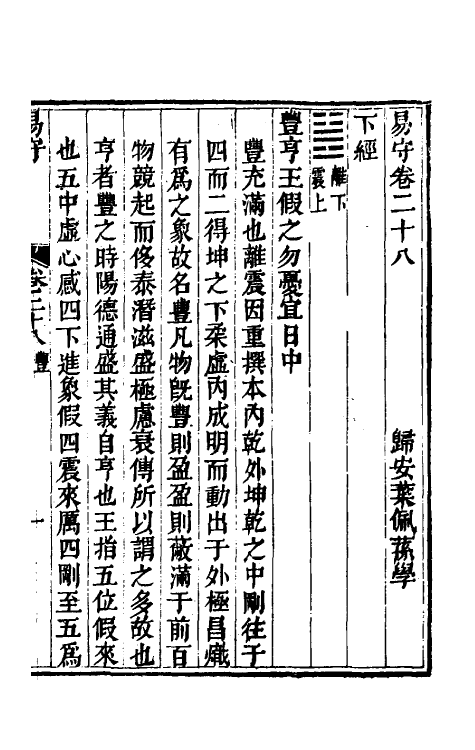 易守卷二十八
歸安葉佩蓀學
下經
離下
震上
豐亨王假之勿憂宜日中
豐充滿也離震因重撰本內乾外坤乾之中剛往于
四而二得坤之下柔虛丙成明而動出于外極昌熾
有為之象故名豐凡物旣豐則盈盈則蔽滿于前百
物競起而侈泰潛滋盛極慮衰傳所以謂之多故也
亨者豐之時陽德通盛其義自亨也王指五位假來
也五中虛心感四下進象假四震來厲四剛至五為
易守
卷二十八 豐
一